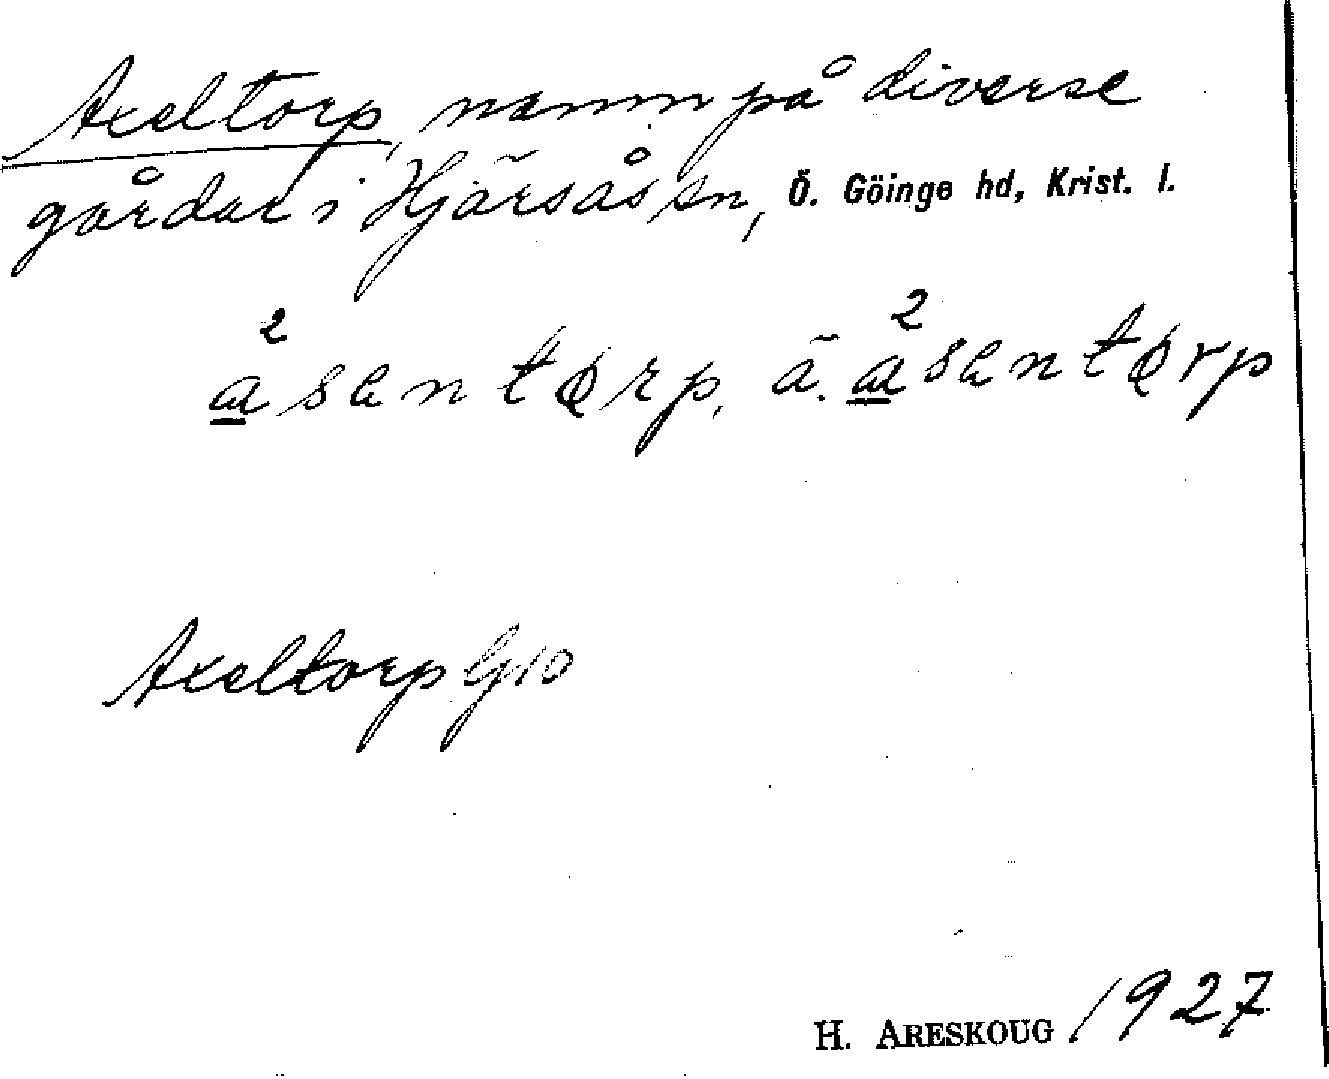 Axeltorp, namn på diverse
gårdar i Hjärsås sn, Ö. Göinge hd, Krist. l.
a²sentørp, ä. a²sentørp
Axeltorp G10
H. ARESKOUG 1927